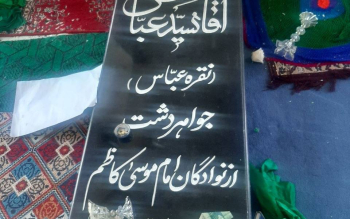 آقا سید عباس
(نقره عباس)
جواهردشت
از نوادگان امام موسی کاظم